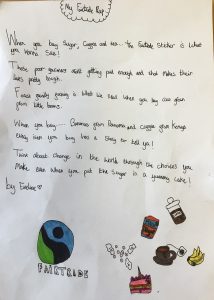 My Fairtrade Rap
When you buy Sugar, Coffee and tea... the Fairtrade Sticker is what
you wanna See!
These poor farmers arent getting paid enough and that makes their
lives pretty tough.
Fairer family farming is what we need when you buy can
plant little beans.
When you buy... Bananas from Panama and coffee from Kenya
Every item you buy has a Story to tell ya!
Think about change in the world through the choices you
Make even when you put the Sugar in a yummy cake!
by
FAIRTRADE